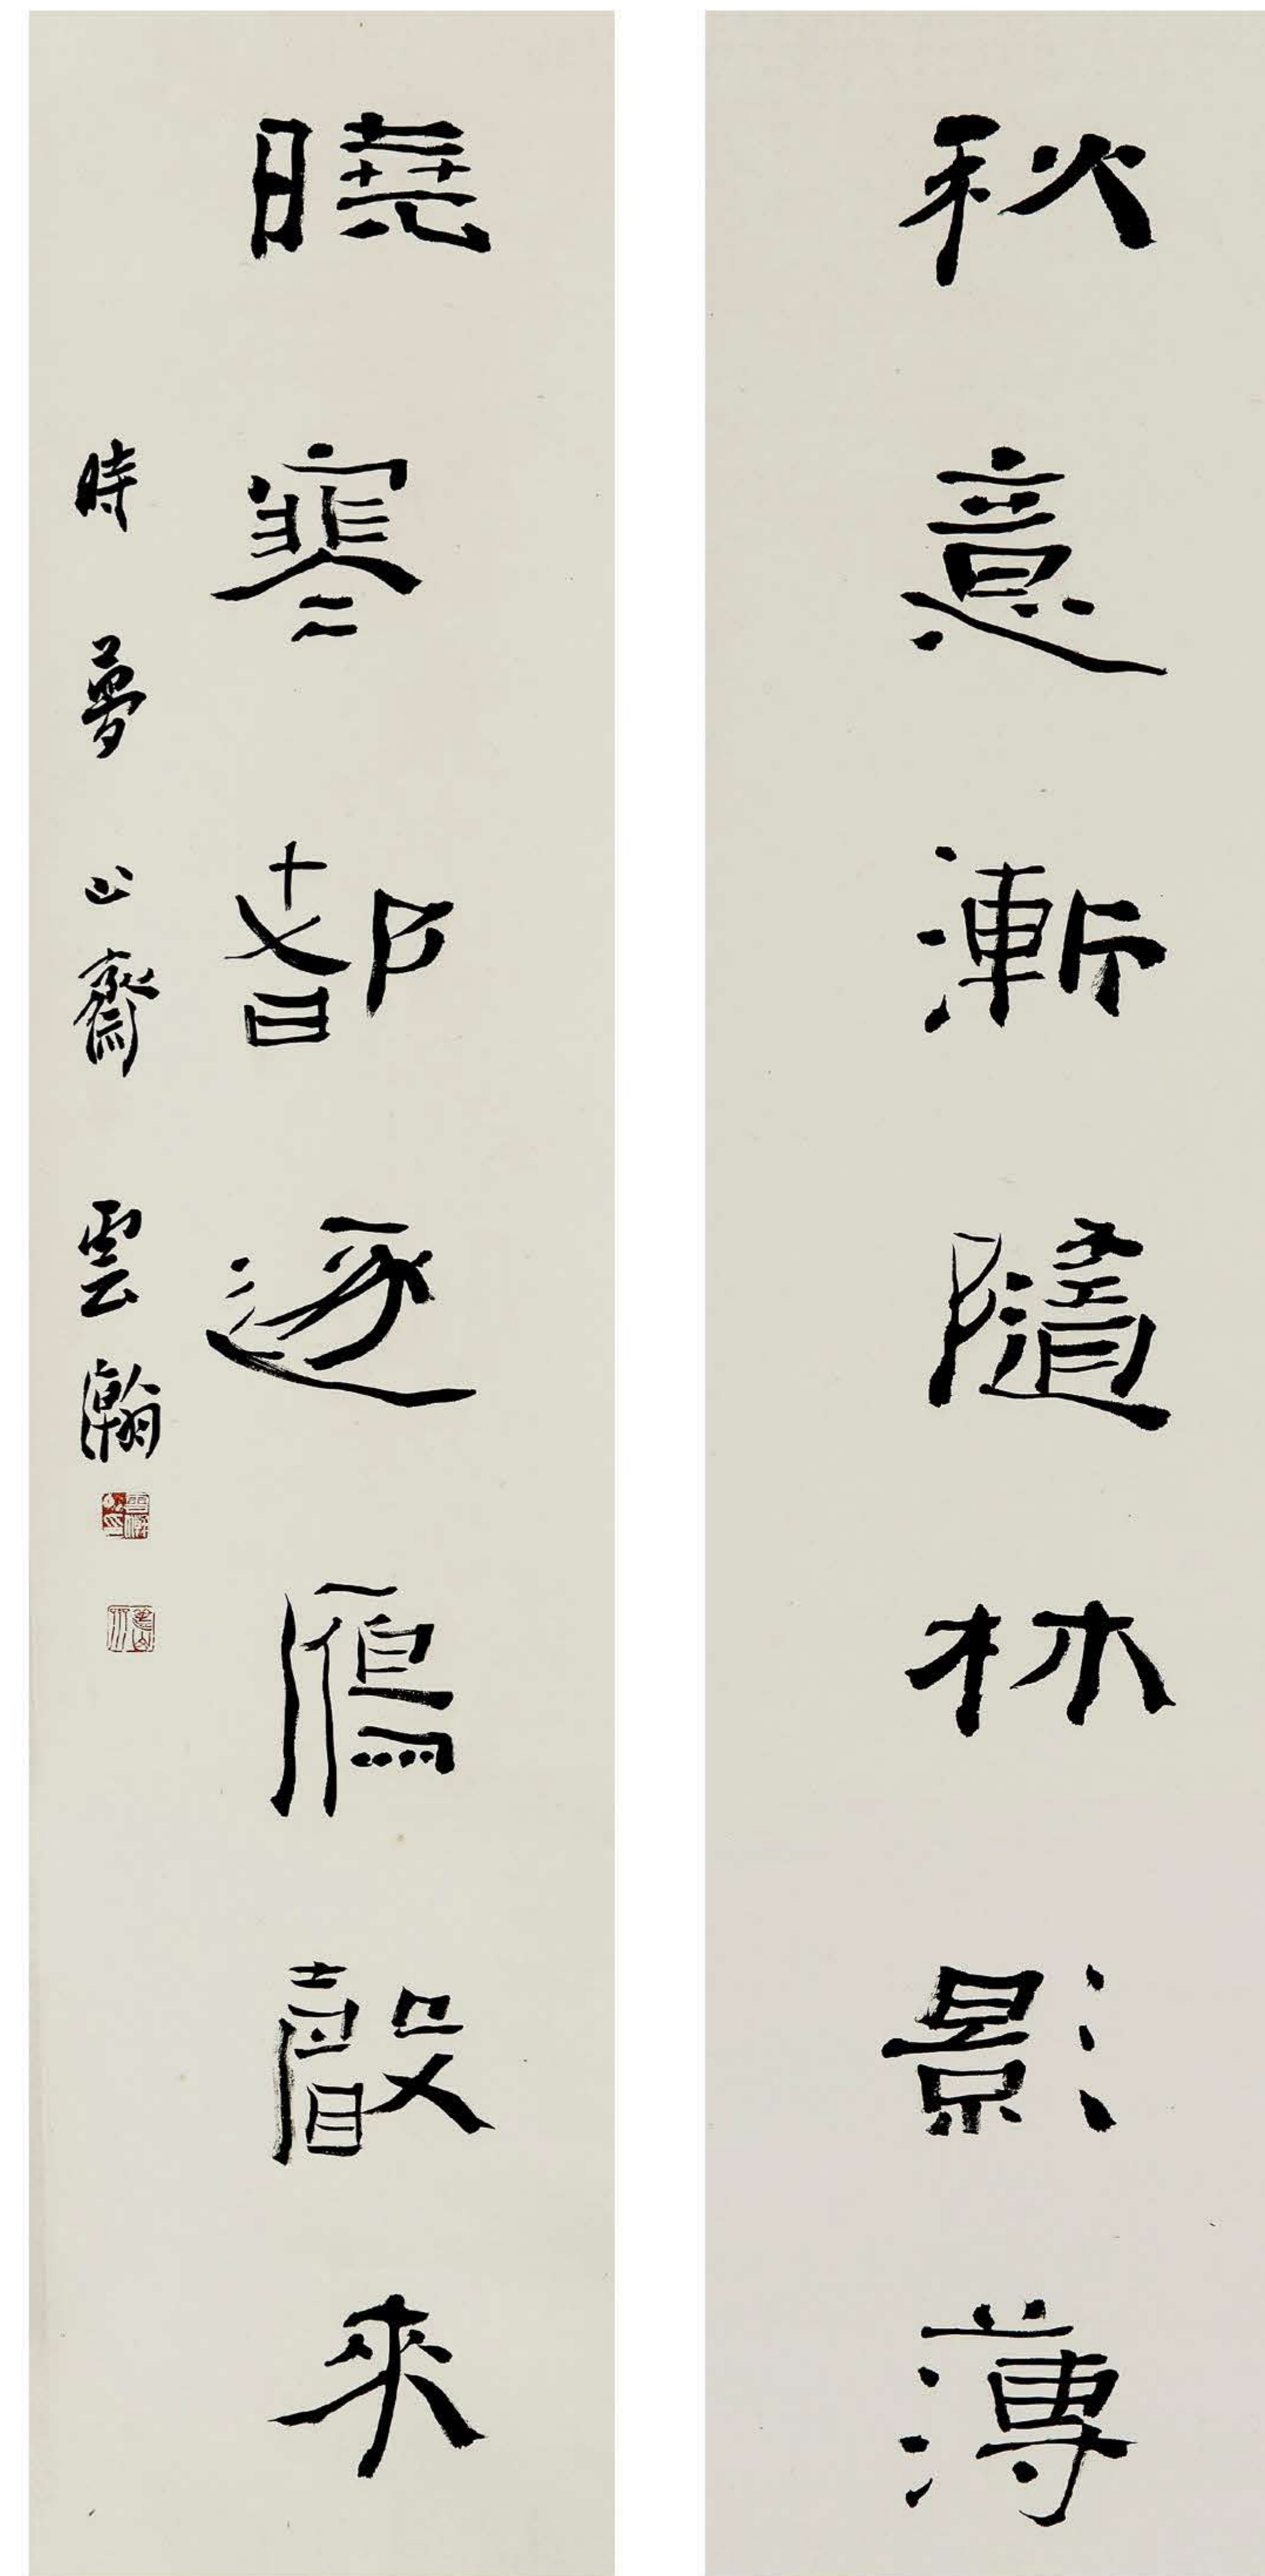 秋意漸隨林影薄
曉寒都逐雁聲來
時夢山齋 雲瀚